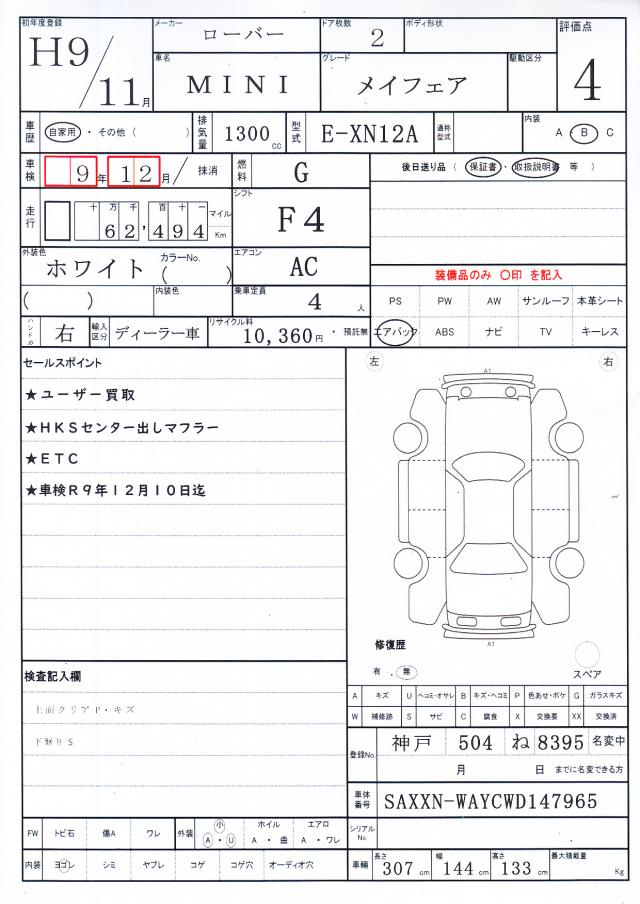 初年度登録 メーカー ローバー ドア枚数 2 ボディ形状 評価点
H9/11月 車名 MINI グレード メイフェア 駆動区分 4
車歴 自家用・その他( ) 排気量 1300cc 型式 E-XN12A 通称型式 内装 A・B C
車検 9年12月/抹消 燃料 G 後日送り品(保証書・取扱説明書 等)
走行 十万千百十一 62,494 マイル Km シフト F4
外装色 ホワイト カラーNo.( ) エアコン AC 装備品のみ 〇印 を記入
( ) 内装色 乗車定員 4人 PS PW AW サンルーフ 本革シート
ハンドル 右 輸入区分 ディーラー車 リサイクル料 10,360円・預託無 エアバック ABS ナビ TV キーレス
セールスポイント 左 右
★ユーザー買取
★HKSセンター出しマフラー
★ETC
★車検R9年12月10日迄
A1
A1
修復歴
有.無 スペア
検査記入欄
上面クリアP・キズ
下廻りS
A キズ U ヘコミ・オサレ B キズ・ヘコミ P 色あせ・ボケ G ガラスキズ
W 補修跡 S サビ C 腐食 X 交換要 XX 交換済
登録No. 神戸 504 ね 8395 名変中
月 日 までに名変できる方
車体番号 SAXXN-WAYCWD147965
FW トビ石 傷A ワレ 外装 小 A・U ホイル A・曲 エアロ A・ワレ シリアルNo.
内装 ヨゴレ シミ ヤブレ コゲ コゲ穴 オーディオ穴 車輌 長さ 307cm 幅 144cm 高さ 133cm 最大積載量 Kg